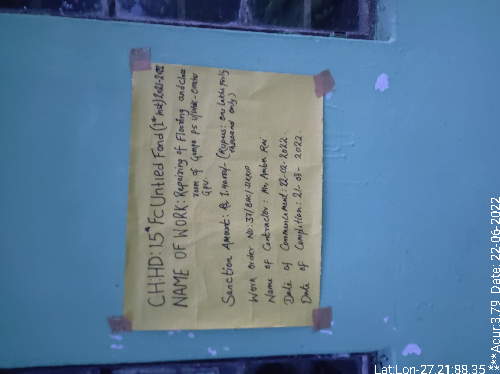 CH:HD: 15th Fc Untied Fond (1st Inst) 2021-2022
NAME OF WORK: Repairing of Flooring and
room of Gumpa PS
GPU.
Sanction Amount: Rs 1,40,000/- (Rupees: one lakh forty
thousand only)
Work order NO: 37/BAC/
Name of Contractor: Mr. Amber Rai
Date of Commencement: 22-02-2022
Date of Completion: 21-03-2022.
Lat:Lon-27.21:88.35
***Acur:3.79 Date: 22-06-2022